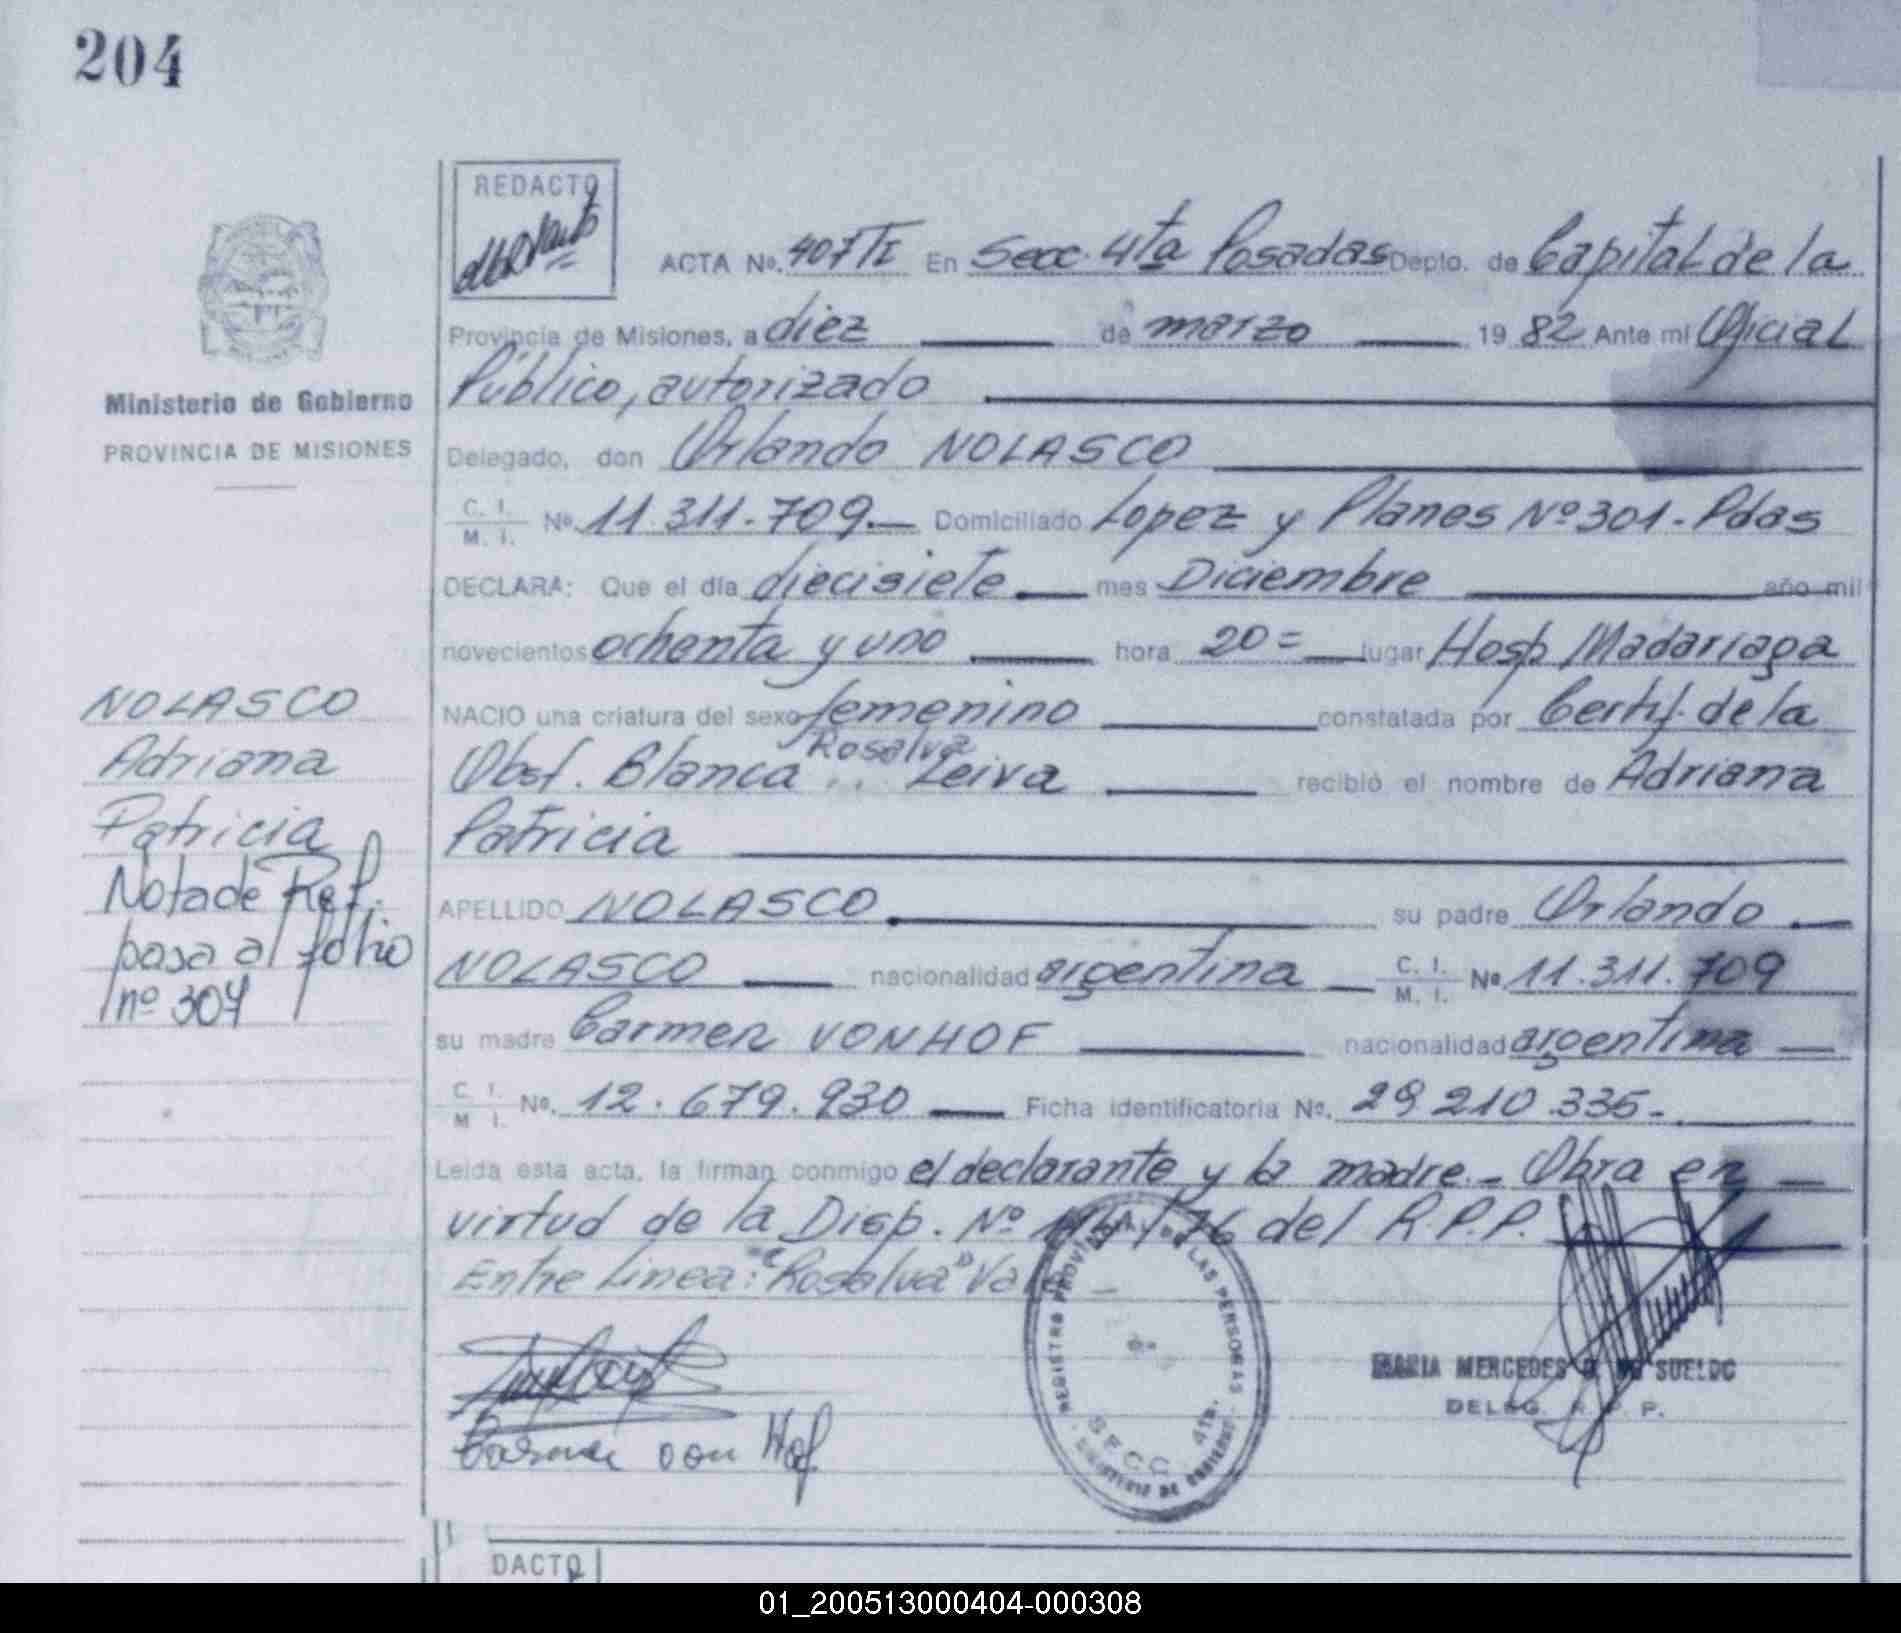 204
REDACTO
ACTA No. 407 TI En Secc. 4ta Posadas Depto. de Capital de la
Provincia de Misiones, a diez de marzo 19 82 Ante mi Oficial
Público, autorizado
Ministerio de Gobierno
PROVINCIA DE MISIONES
Delegado, don Orlando NOLASCO
C. I. M. I. No. 11.311.709.- Domiciliado Lopez y Planes Nº 301. Pdas
DECLARA: Que el día diecisiete mes Diciembre año mil
novecientos ochenta y uno hora 20= lugar Hosp Madariaga
NACIO una criatura del sexo femenino constatada por Certif. de la
Rosalva
Obst. Blanca .. Leiva recibió el nombre de Adriana
Patricia
APELLIDO NOLASCO su padre Orlando
NOLASCO nacionalidad argentina C. I. M. I. No 11.311.709
su madre Carmen VONHOF nacionalidad argentina
C. I. M I. No. 12.679.930 Ficha identificatoria No. 29 210.335-
Leida esta acta, la firman conmigo el declarante y la madre.- Obra en
virtud de la Disp. Nº /76 del R.P.P.
Entre Linea: "Rosalva" Vale
NOLASCO
Adriana
Patricia
Nota de Ref.
pasa al folio
nº 304
Carmen von Hof
REGISTRO PROVINCIAL DE LAS PERSONAS
SECC 4ta.
MINISTERIO DE GOBIERNO
MARIA MERCEDES DE SUELDO
DELEG. R. P. P.
DACTO
01_200513000404-000308